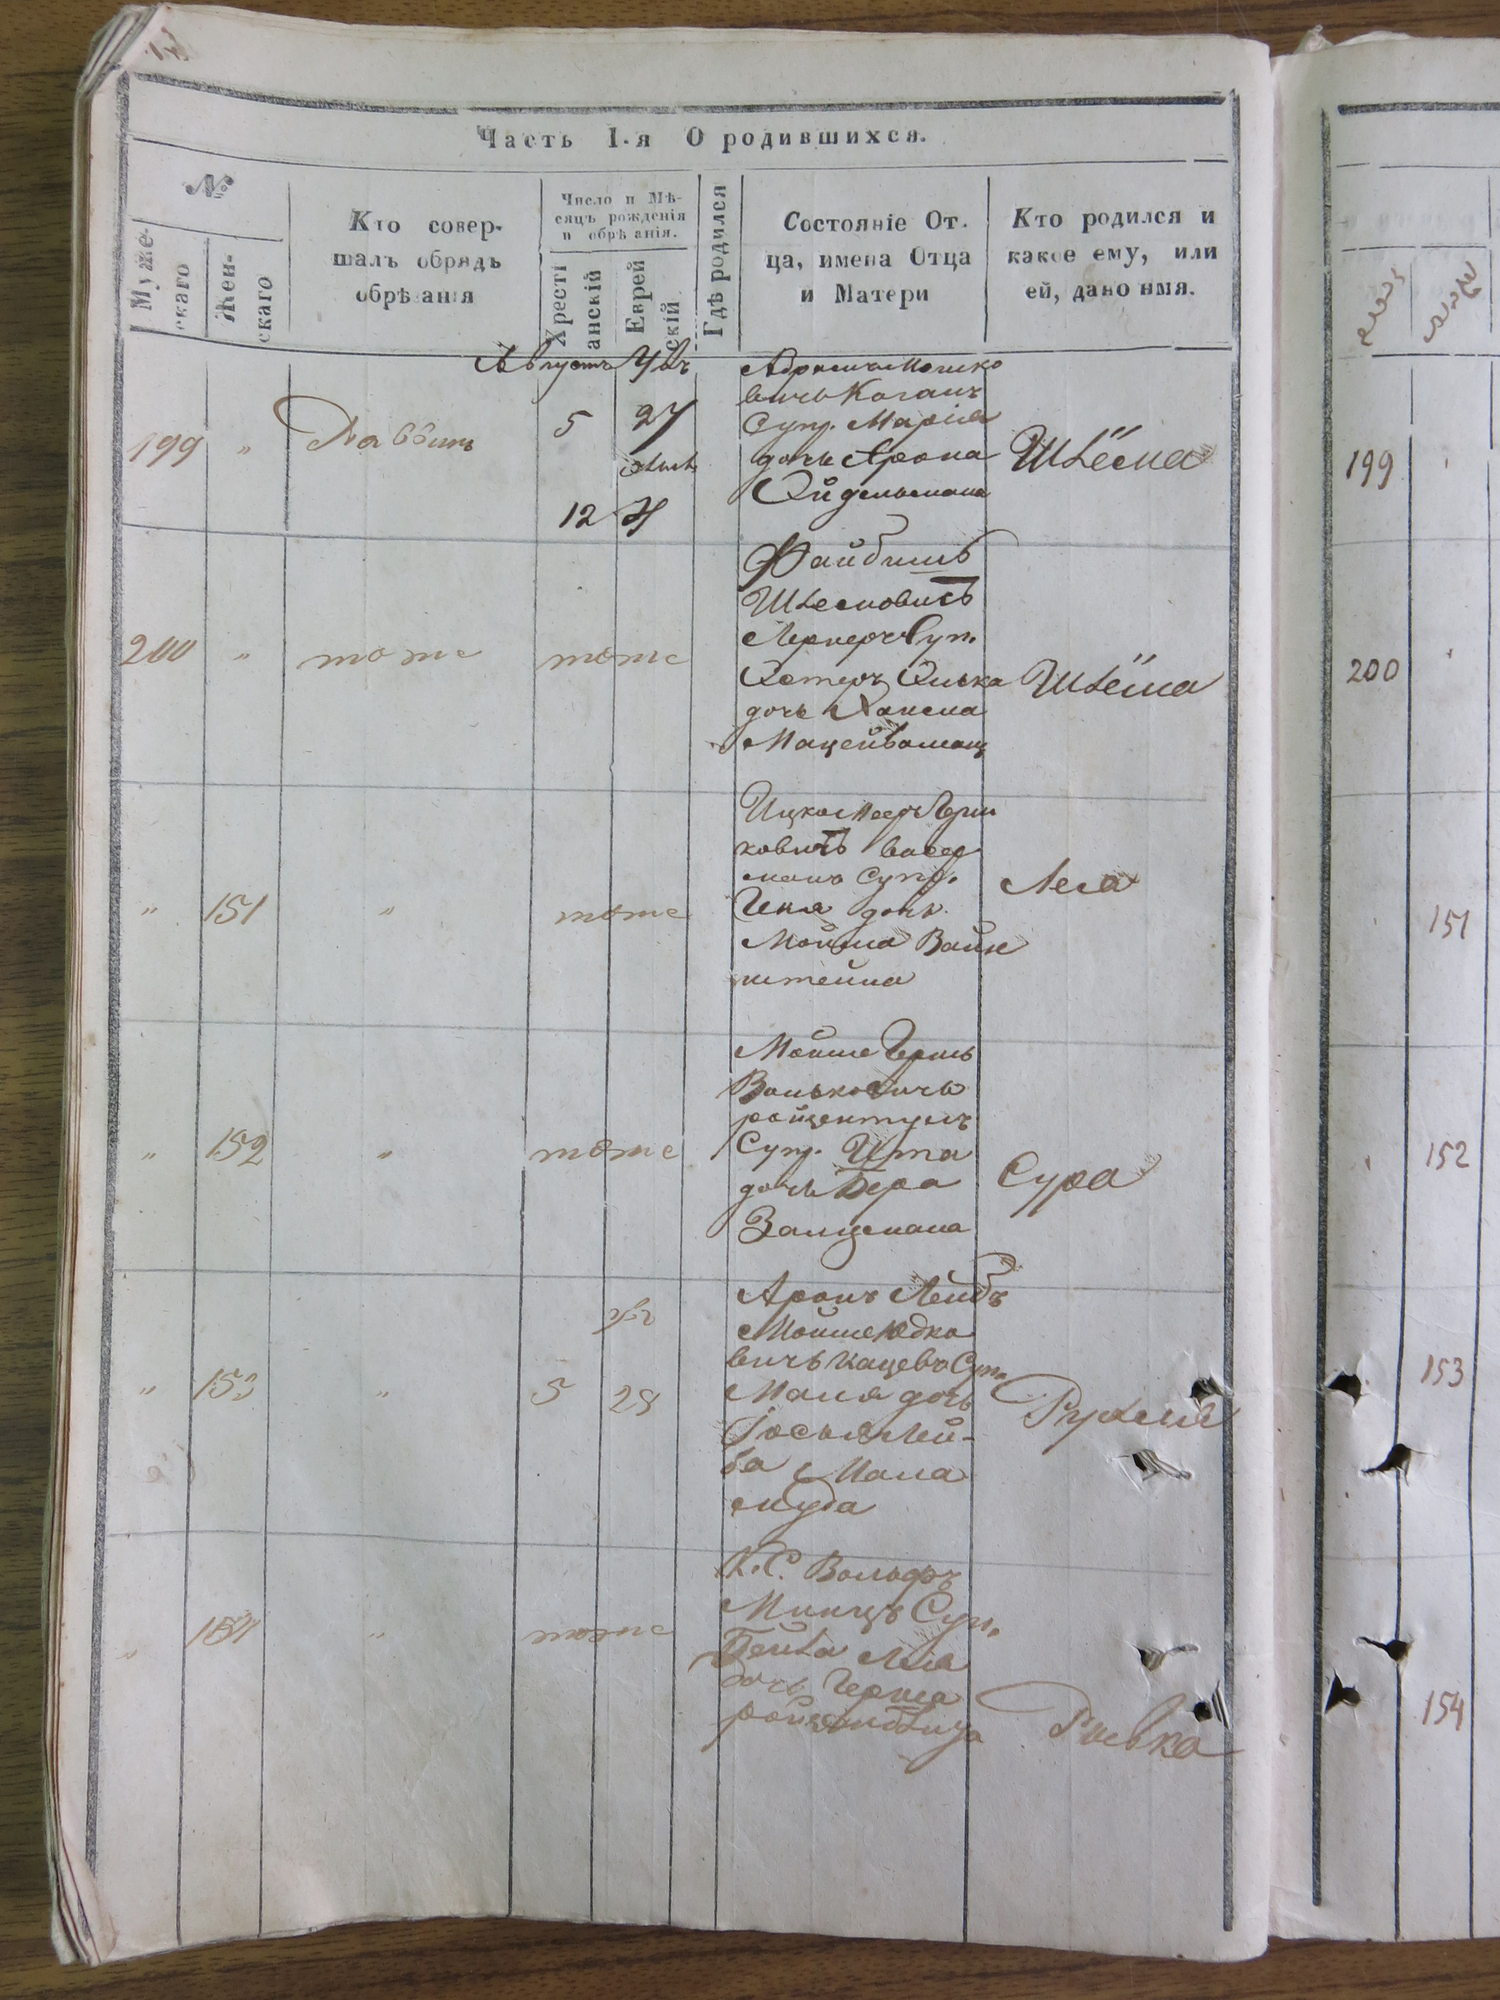 Часть I-я О родившихся.
№
Мужескаго
Женскаго
Кто совершалъ обрядъ обрѣзанія
Число и Мѣсяцъ рожденія и обрѣзанія.
Хрестіанскій
Еврейскій
Гдѣ родился
Состояніе Отца, имена Отца и Матери
Кто родился и какое ему, или ей, дано имя.
Августъ
199
"
Раввинъ
5
27
12
Абрамъ Мошко
вичь Коганъ
Супр. Марія
дочь Арона
Эйдельмана
Шлёма
200
"
тоже
тоже
Файбишъ
Шлемовичъ
Лернеръ Суп.
Эстеръ Элька
дочь
Шлёма
"
151
"
тоже
Ицко Меер Герш
ковичъ Васер
манъ Супр.
Геня дочь
Мойша Вайн
штейна
Леа
"
152
"
тоже
Мойше Гершъ
Волькович
ройзентулъ
Супр. Ита
дочь Бера
Залцмана
Сура
"
153
"
5
28
Аронъ Лейбъ
Мойше Юдко
вичъ Кацевъ Суп.
Маля дочь
Іосья Лей-
ба Мала
муда
Рухля
"
154
"
тоже
К. С. Вольфъ
Минцъ Суп.
Бейла Лея
дочь Герша
Ривка
199
200
151
152
153
154